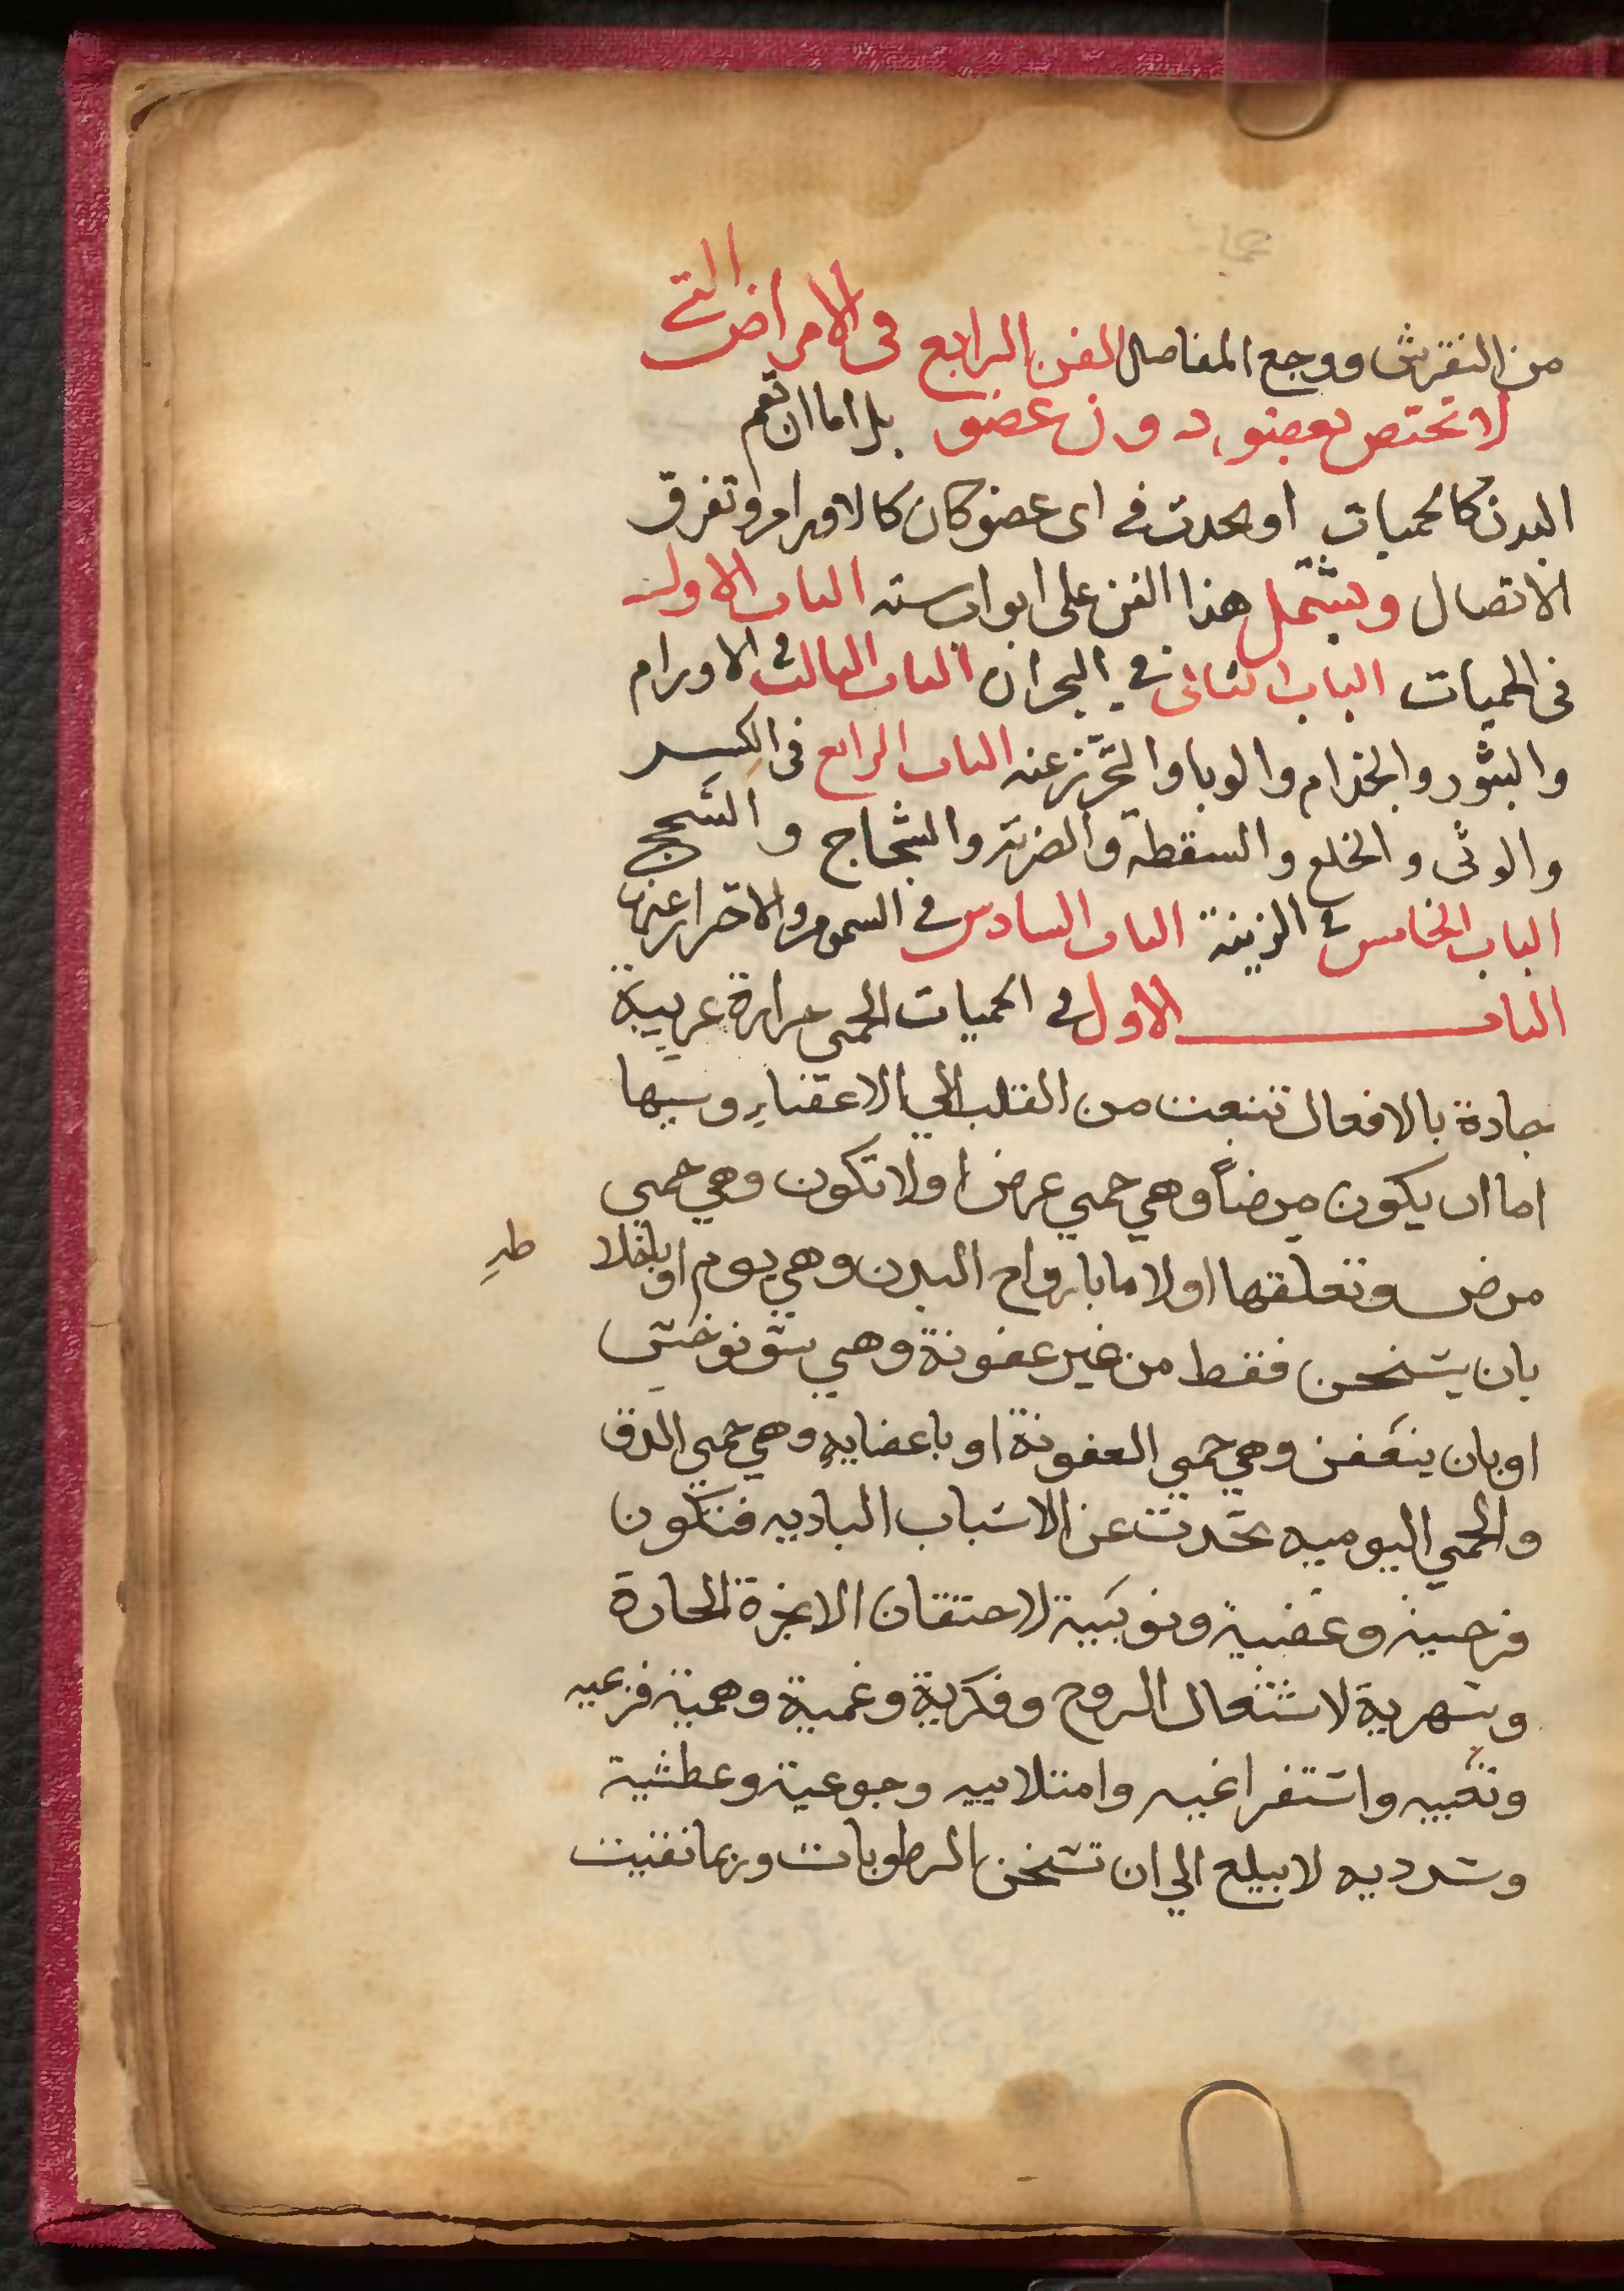 من النقرش ووجع المفاصل الفن الرابع فى الامراض التى
لا تختص بعضو دون عضو بل اما ان تعم
البدن كالحميات او يحدث فى اى عضو كان كالاورام وتفرق
الاتصال ويشتمل هذا الفن على ابواب سته الباب الاول
فى الحميات الباب الثانى فى البحران الباب الثالث فى الاورام
والبثور والجذام والوبا والتحرز عنه الباب الرابع فى الكسر
والوثى والخلع والسقطة والضربة والشجاج والسحج
الباب الخامس فى الزينة الباب السادس فى السموم والاحتراز عنها
الباب الاول فى الحميات الحمى حرارة غريبة
ضادة بالافعال تنبعث من القلب الي الاعضاء وسببها
اما ان يكون مرضاً وهي حمي عرض او لا تكون وهي حمي
مرض وتعلقها اولا ما بارواح البدن وهي يوم او باخلا طه
بان يسخن فقط من غير عفونة وهي سونوخس
او بان يتعفن وهي حمي العفونة او باعضايه وهي حمي الدق
والحمي اليوميه تحدث عن الاسباب الباديه فتكون
فرحية وغضبية ونوبية لاحتقان الابخرة الحارة
وسهرية لاشتعال الروح وفكرية وغمية وهمية فزعيه
وتعبيه واستفراغيه وامتلاييه وجوعية وعطشية
وسدديه لا يبلع الي ان تسخن الرطوبات وربما نقيت